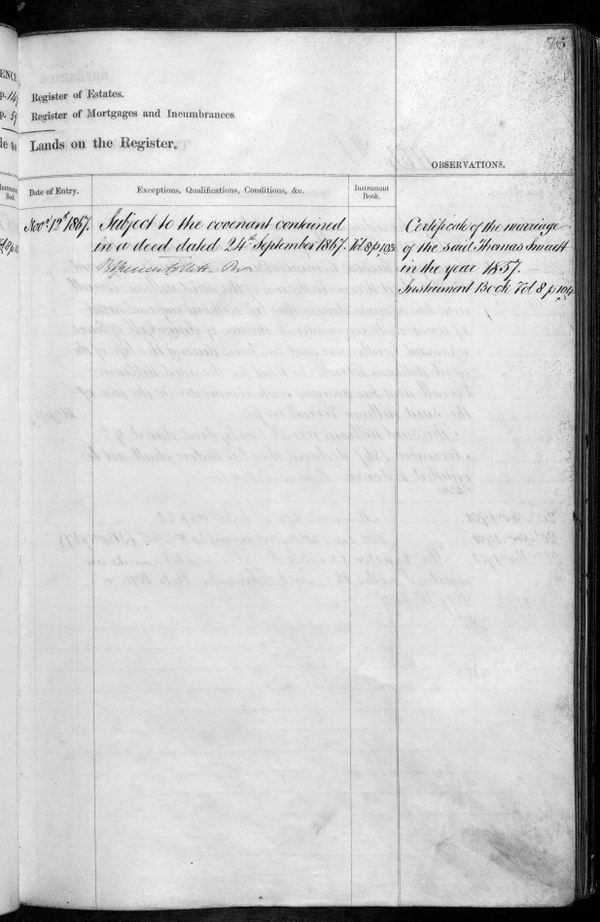 76
Register of Estates.
Register of Mortgages and Incumbrances
Lands on the Register.
OBSERVATIONS.
Date of Entry.
Exceptions, Qualifications, Conditions, &c.
Instrument
Book.
Nov.r 12th 1867.
Subject to the covenant contained
in a deed dated 24th September 1867.
Vol 8 p 103
Certificate of the marriage
of the said Thomas Smart
in the year 1857.
Instrument Book Vol 8 p 104